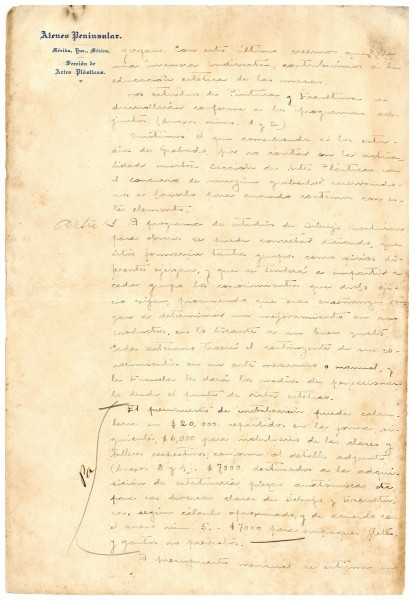 Ateneo Peninsular.
Mérida, Yuc., México.
Sección de
Artes Plásticas.
Con esto último creemos que, de
una manera indirecta, contribuimos a la
educación estética de las masas.
Los estudios de Pintura y Escultura se
desarrollarán conforme a los programas ad-
juntos (Anexos núms. 1 y 2)
Omitimos el que corresponde a los estu-
dios de Grabado por no contar en la actua-
lidad nuestra Sección de Artes Plásticas con
el concurso de ningún grabador reservando-
nos a hacerlo para cuando contemos con es-
te elemento.
El programa de estudios de Dibujo nocturno
para obreros se puede concretar diciendo, que
éstos formarán tantos grupos como oficios di-
ferentes ejerzan, y que se tenderá a impartir a
cada grupo los conocimientos que dicho ofi-
cio exijan, procurando que esas enseñanzas ven-
gan a determinar un mejoramiento en sus
productos, en lo tocante a un buen gusto.
Cada artesano traerá el contingente de sus co-
nocimientos en un arte mecánico o manual, y
la Escuela le dará los medios de perfeccionar-
la desde el punto de vista estético.
El presupuesto de instalación puede calcu-
larse en $20,000. repartidos en la forma si-
guiente: $6,000 para mobiliario de las clases y
talleres respectivos, conforme al detalle adjunto
(Anexos 3 y 4). $7000. destinados a la adqui-
sición de estatuaria, piezas anatómicas etc.
para las diversas clases de Dibujo y Escultu-
ra, según cálculo aproximado, y de acuerdo con
el anexo núm 5.- $7000 para empaques, fletes,
y gastos no previstos.
El presupuesto mensual se estima en